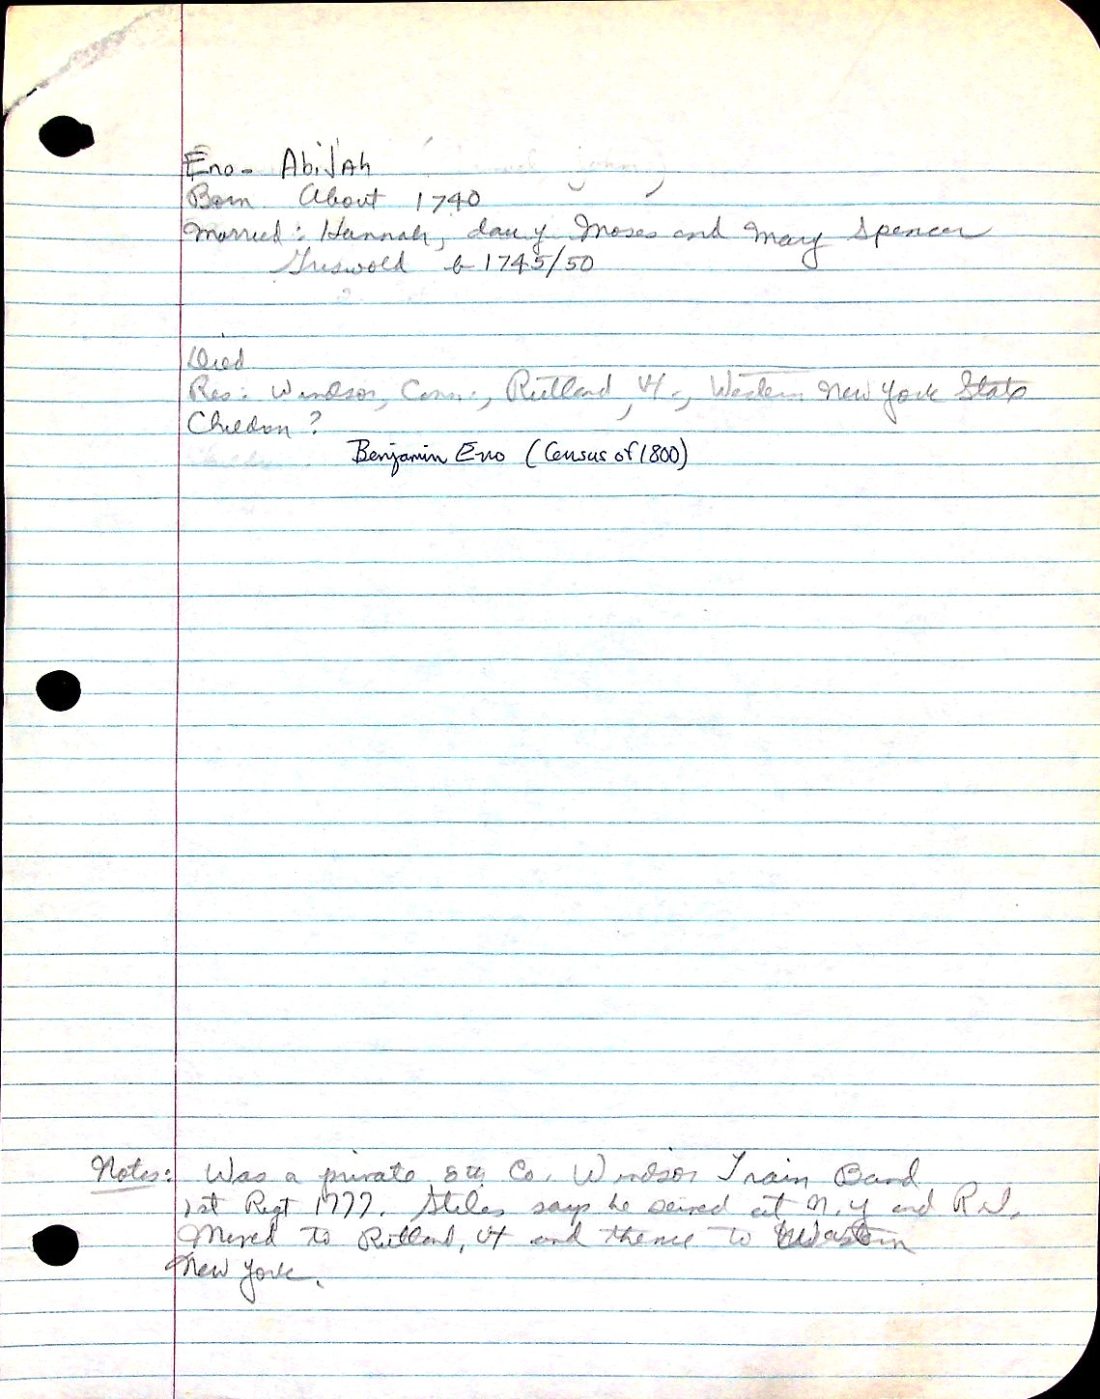 Eno - Abijah
Born About 1740
Married: Hannah, dau of Moses and Mary Spencer
Griswold b 1745/50
Died
Res: Windsor, Conn., Rutland, Vt., Western New York State
Children?
Benjamin Eno (Census of 1800)
Notes: Was a private 8th Co. Windsor Train Band
1st Regt 1777. Stiles says he served at N.Y and R.I.
Moved to Rutland, Vt and thence to Western
New York.